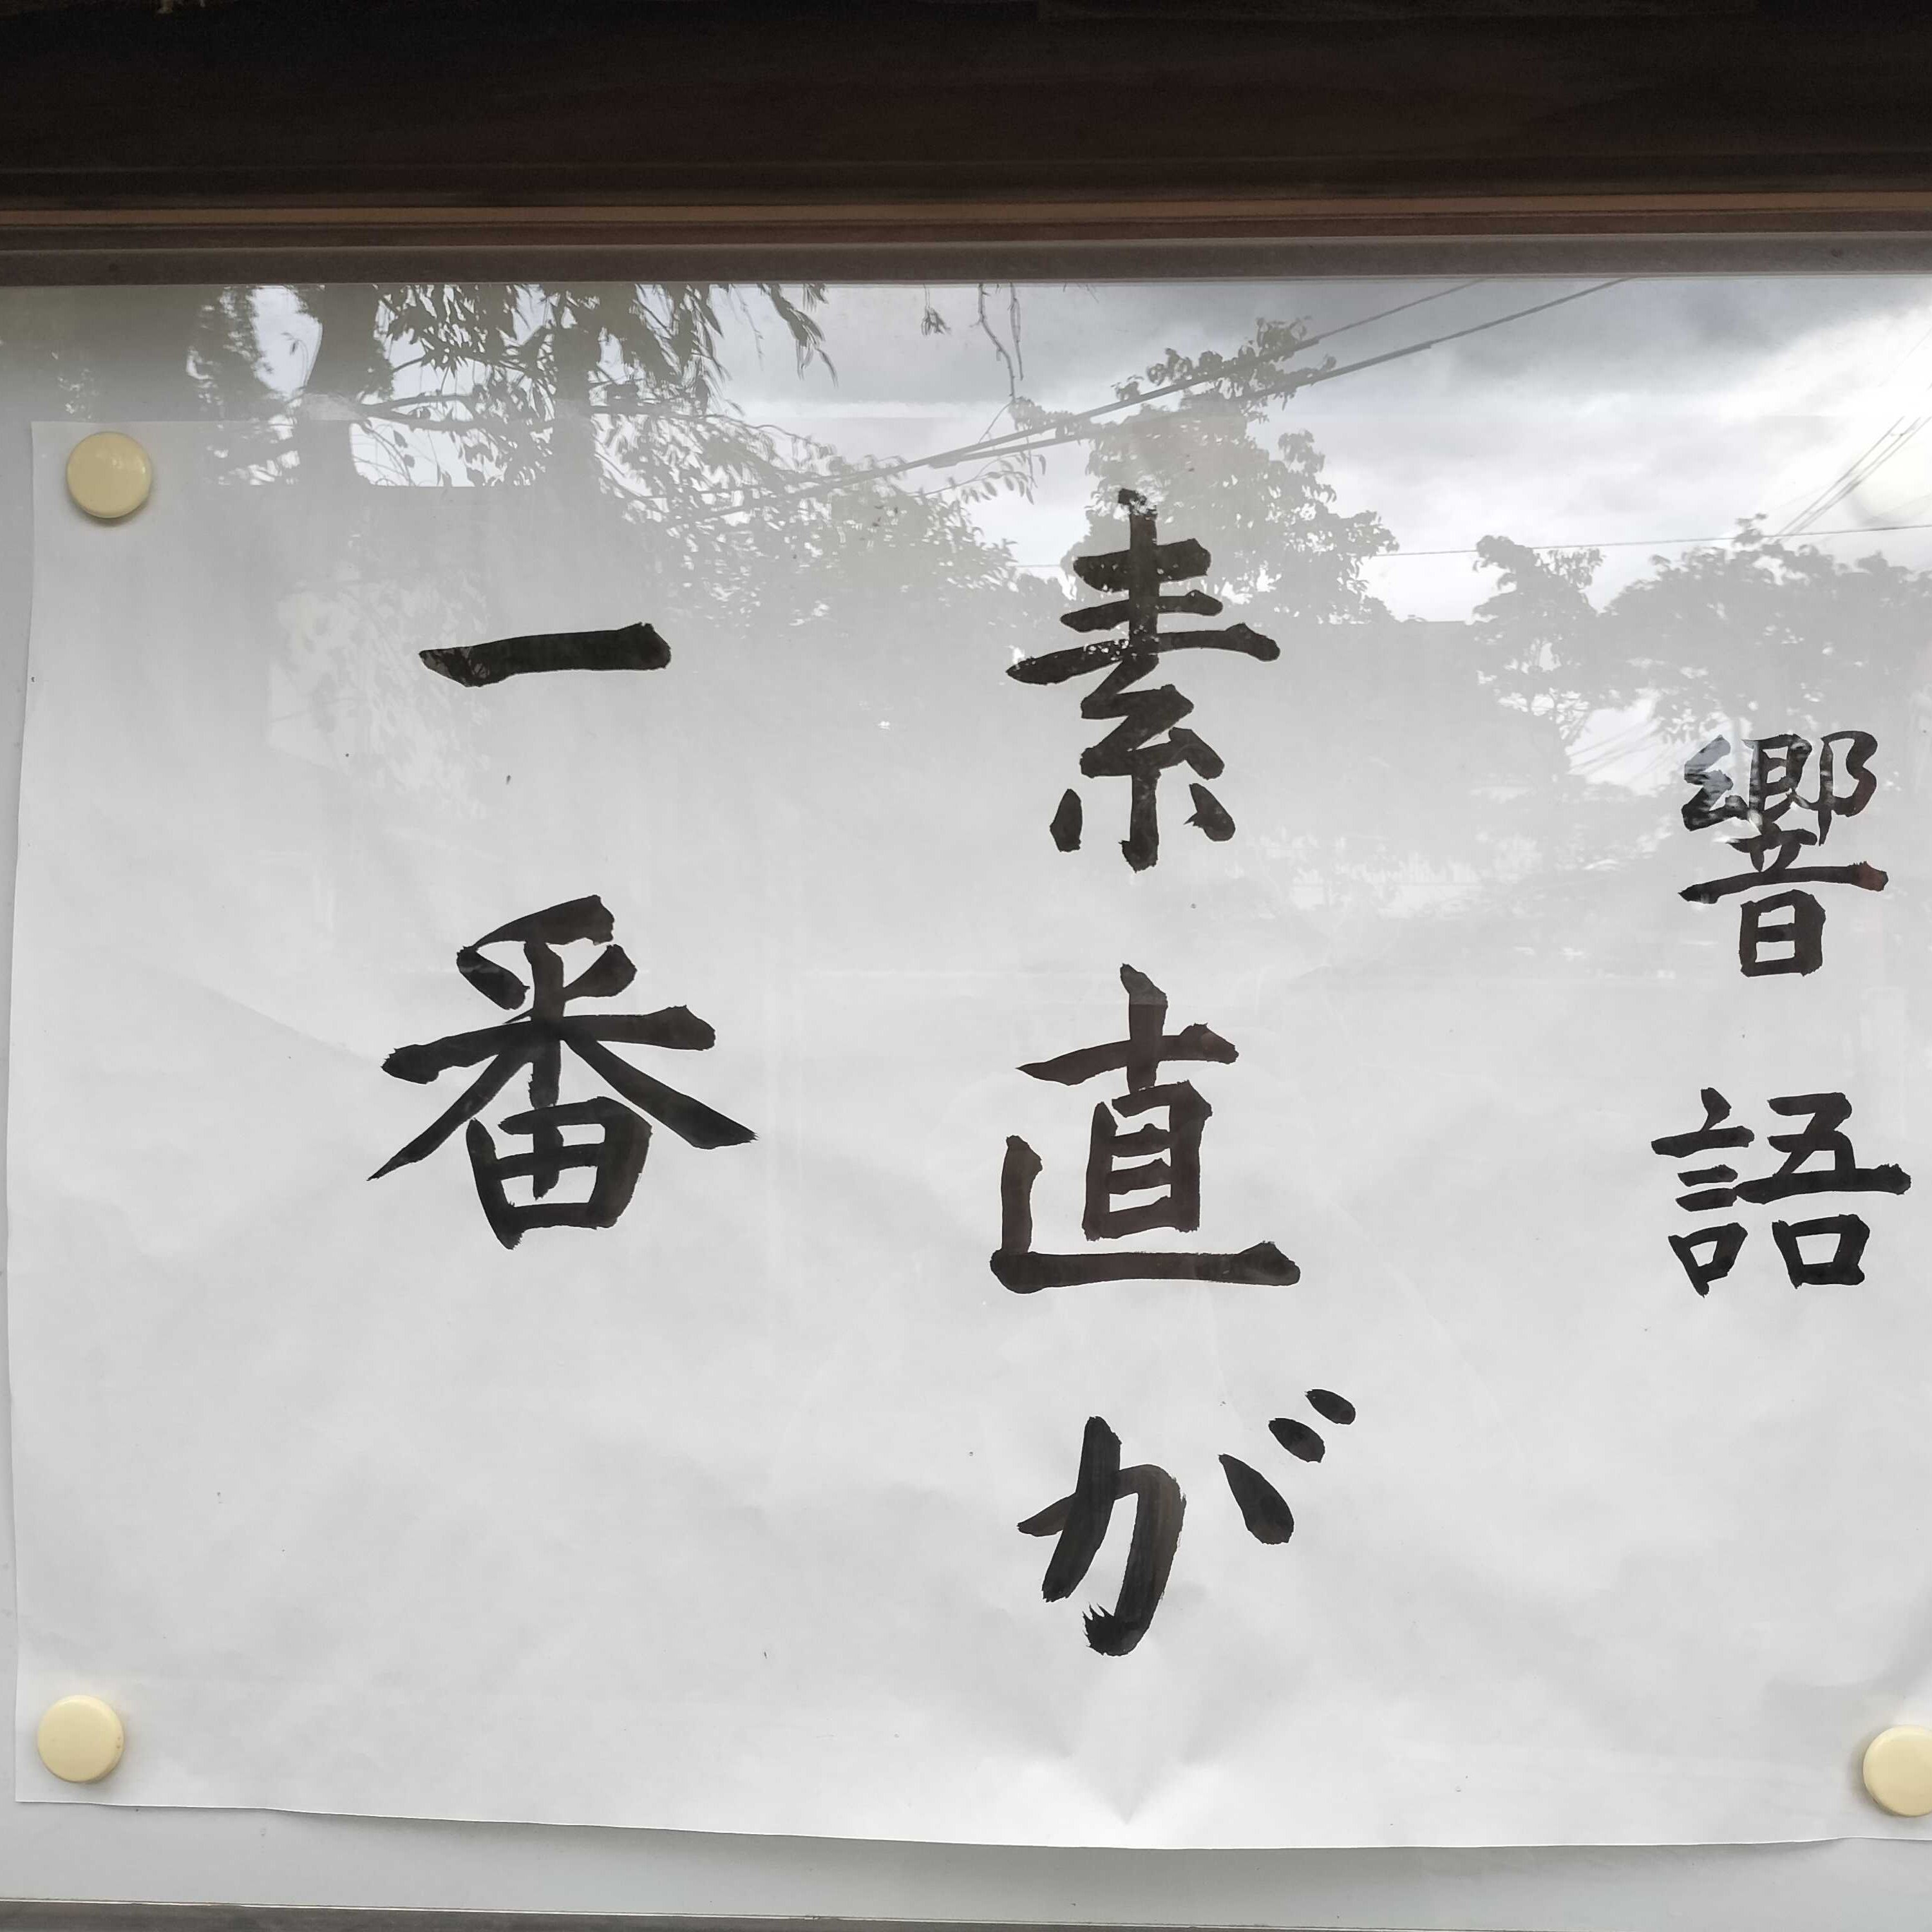 響語
素直が
一番